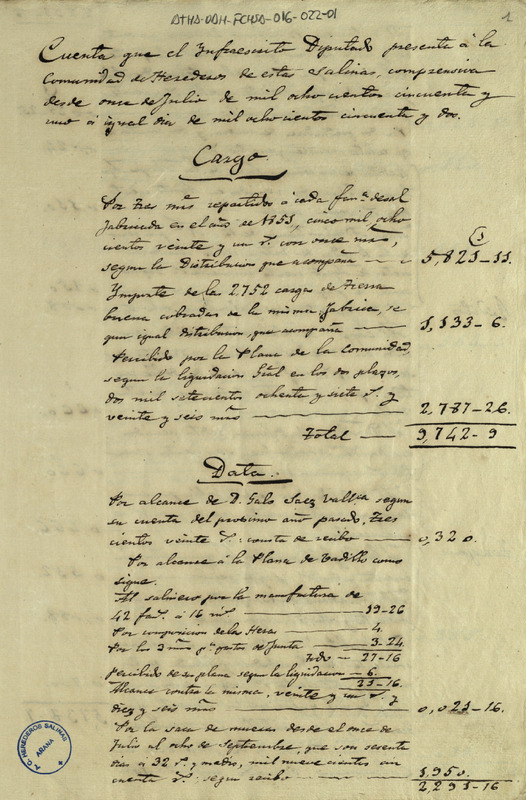 ATHA-DAH-FCHSA-016-022-01
1
Cuenta que el Infraescrito Diputado presenta á la
Comunidad de Herederos de estas Salinas, comprensiva
desde once de Julio de mil ocho cientos cincuenta y
uno á igual dia de mil ochocientos cincuenta y dos.
Cargo.
Por tres mrs repartidos á cada fana de sal
fabricada en el año de 1851, cinco mil, ocho
cientos veinte y un rs. con once mrs,
segun la Distribucion que acompaña — 5,821-11.
(1)
Ymporte de las 2752 cargas de tierra
buena cobradas de la misma fabrica, se
gun igual distribucion, que acompaña — 1,133-6.
Percibido por la Plana de la Comunidad,
segun la liquidacion Gral en los dos plazos,
dos mil setecientos ochenta y siete rs. y
veinte y seis mrs — 2,787-26.
Total — 9,742-9
Data.
Por alcance de D. Galo Saez Vallua segun
su cuenta del procsimo año pasado, tres
cientos veinte rs.: consta de recibo — 0,320.
Por alcance á la Plana de Vadillo como
sigue.
Al salinero por la manufactura de
42 fans. á 16 mrs — 19-26
Por composicion de la Hera — 4.
Por los 3 mrs pa gastos de Junta — 3-24.
Todo — 27-16
Percibido de su plana segun la liquidacion — 6.
21-16.
Alcance contra la misma, veinte y un rs. y
diez y seis mrs — 0,021-16.
Por la saca de mueras desde el once de
Julio al ocho de Septiembre, que son sesenta
dias á 32 rs. y medio, mil nueve cientos cin
cuenta rs.: segun recibo — 1,950.
2,291-16
T.C. HEREDEROS SALINAS
AÑANA